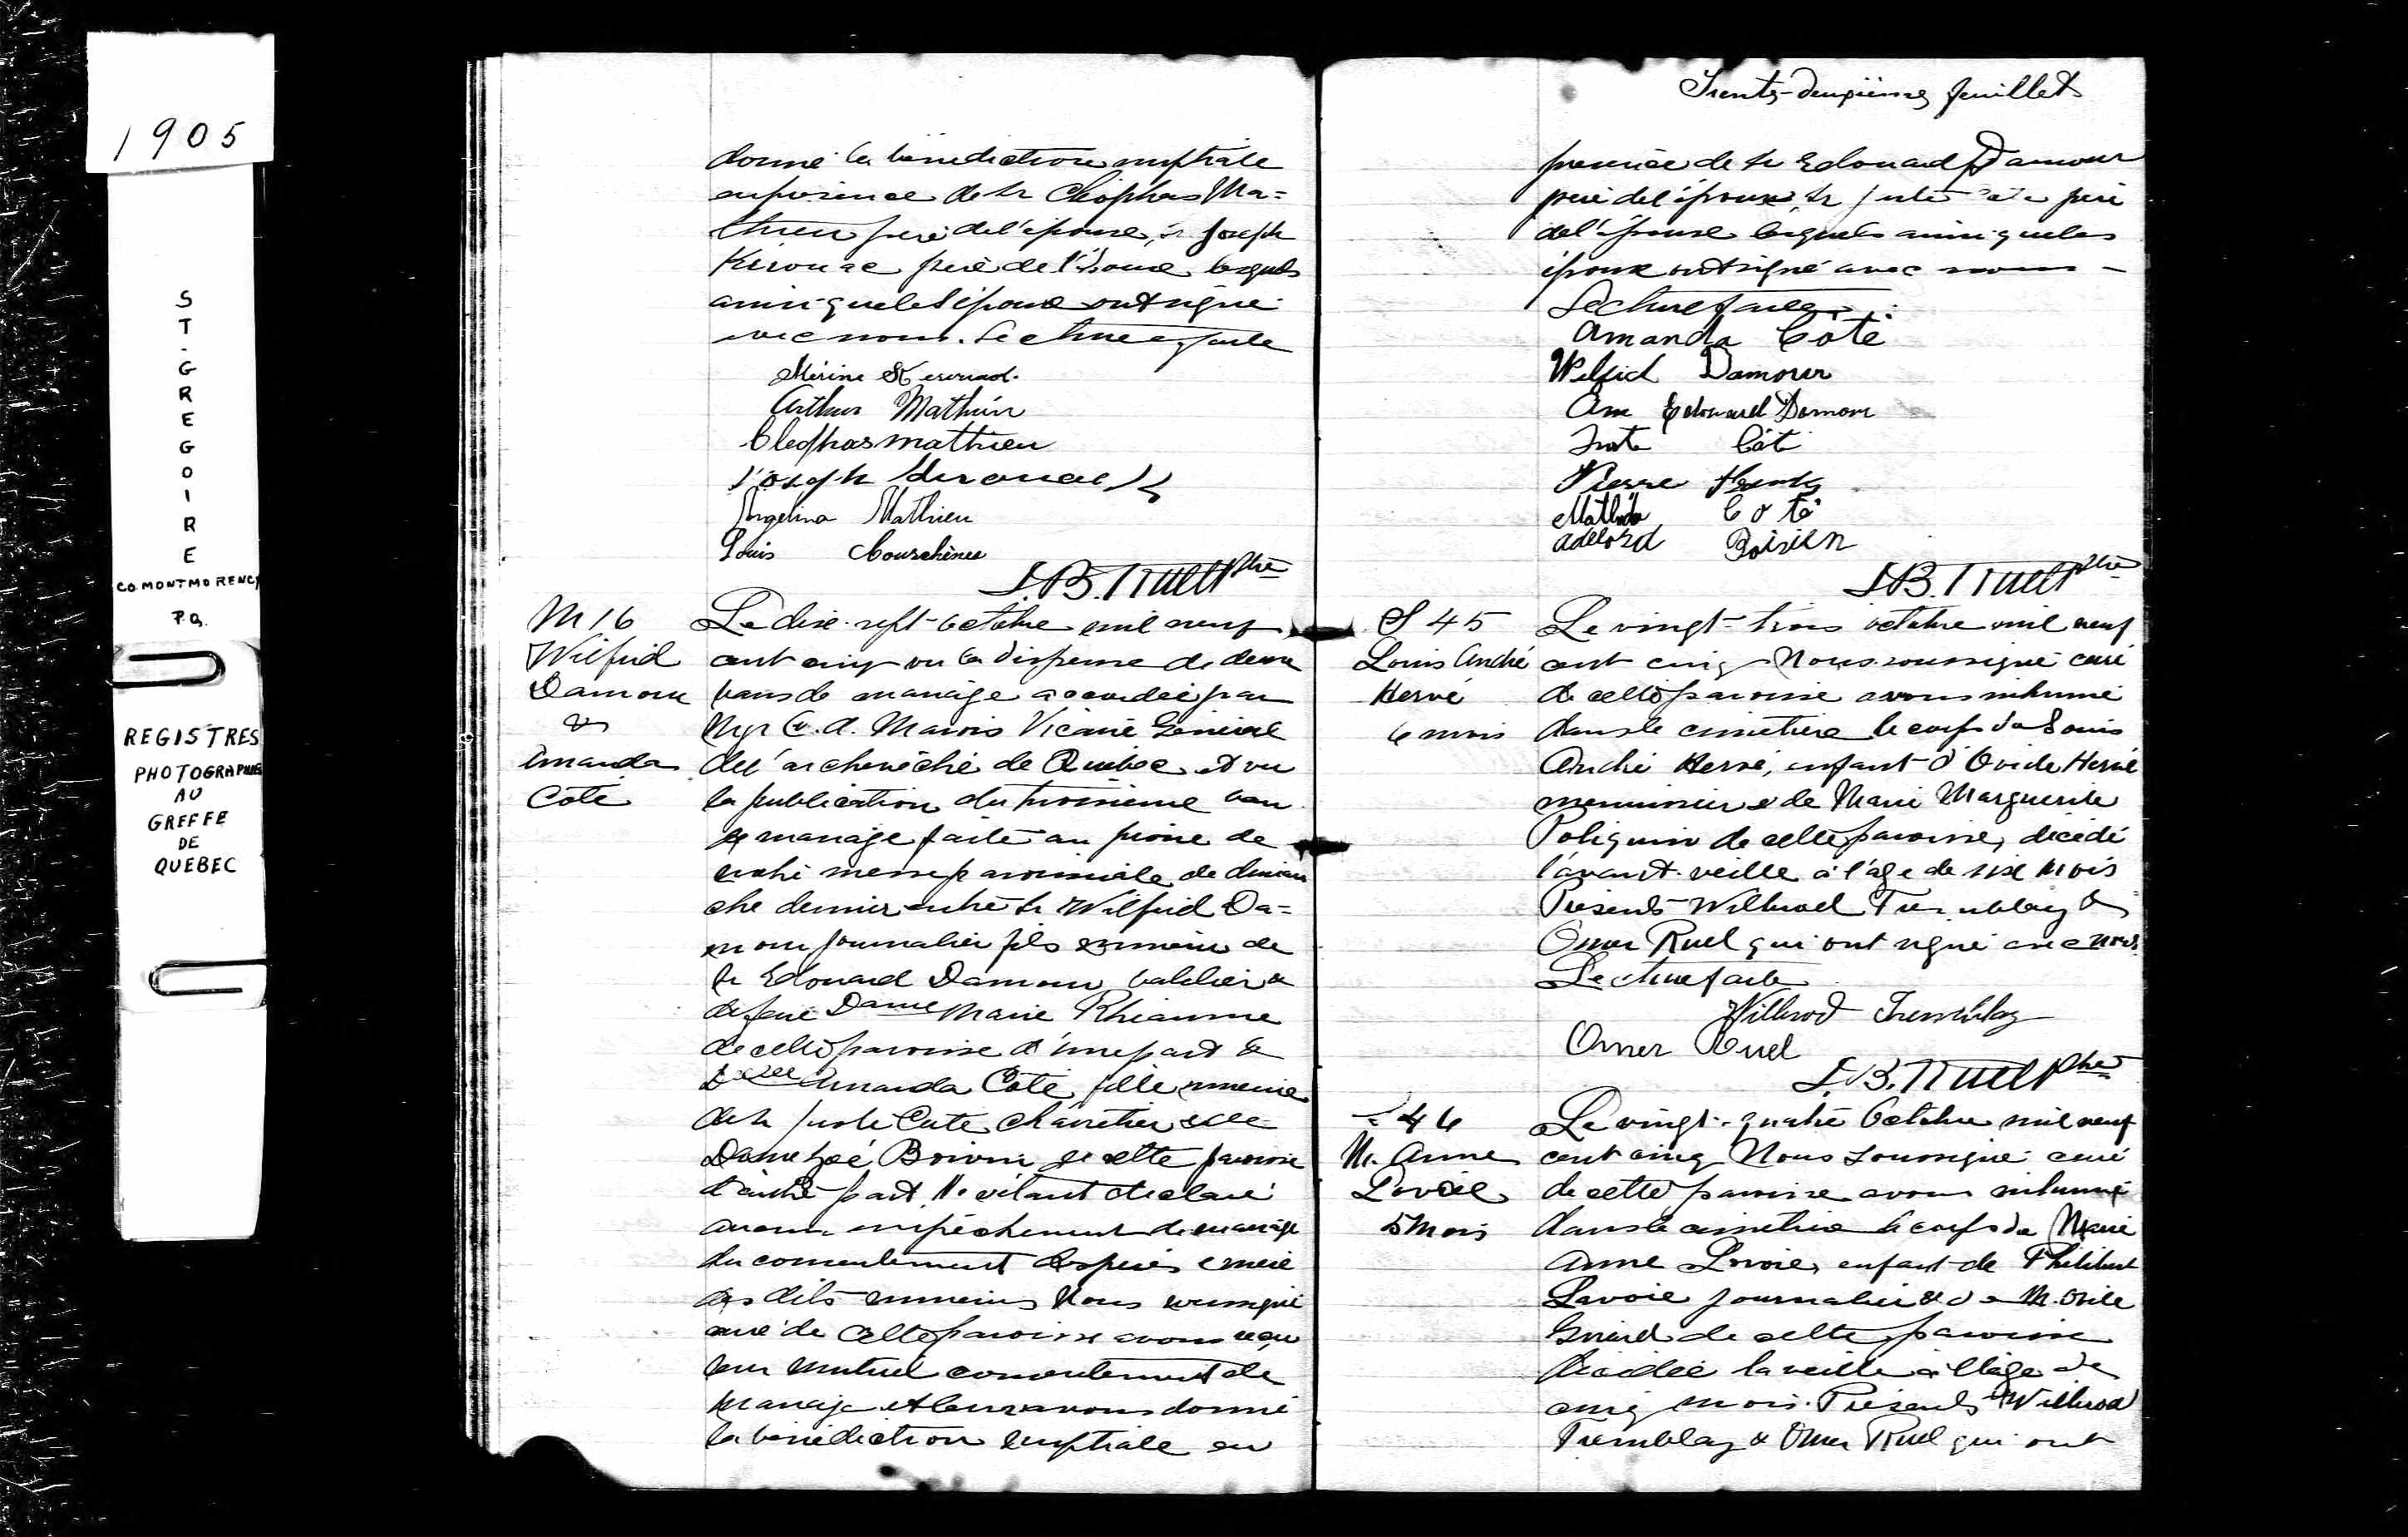 1905
ST. GREGOIRE
CO. MONTMORENCY
P.Q.
REGISTRES
PHOTOGRAPHIES
AU
GREFFE
DE
QUEBEC
donné la bénédiction nuptiale
en présence de Sr Cléophas Ma=
thieu père de l'épouse, Sr Joseph
Kirouac père de l'époux lesquels
ainsi que les époux ont signé
avec nous. Lecture faite
Arthur Mathieu
Cleophas Mathieu
Joseph Kirouac
Angelina Mathieu
Louis
J.B. Ruel Ptre
M 16
Wilfrid
Damour
&
Amanda
Côté
Le dix-sept octobre mil neuf
cent cinq vu la dispense de deux
bans de mariage accordée par
Mgr C. A. Marois Vicaire Général
de l'archevêché de Québec et vu
la publication du troisième ban
de mariage faite au prône de
notre messe paroissiale de diman
che dernier entre Sr Wilfrid Da=
mour journalier fils mineur de
Sr Edouard Damour batelier &
de feue Dame Marie Rhéaume
de cette paroisse d'une part &
Delle Amanda Côté, fille mineure
de Sr Juste Côté charretier & de
Dame Zoé Boivin de cette paroisse
d'autre part. Ne s'étant déclaré
aucun empêchement de mariage
du consentement des pères & mère
des dits mineurs Nous soussigné
curé de cette paroisse avons reçu
leur mutuel consentement de
mariage et leur avons donné
la bénédiction nuptiale en
Trente-deuxième feuillet
présence de Sr Edouard Damour
père de l'époux, Sr Juste Côté père
de l'épouse lesquels ainsi que les
époux ont signé avec nous -
Lecture faite.
Amanda Côté
Wilfrid Damour
Edouard Damour
Juste Côté
Pierre
Mathilda Coté
Adélord Poirier
J.B. Ruel Ptre
S 45
Louis André
Hervé
6 mois
Le vingt-trois octobre mil neuf
cent cinq Nous soussigné curé
de cette paroisse avons inhumé
dans le cimetière le corps de Louis
André Hervé, enfant d'Ovide Hervé
menuisier & de Marie Marguerite
Poliquin de cette paroisse, décédé
l'avant-veille à l'âge de six mois
Présents Wilbrod Tremblay &
Omer Ruel qui ont signé avec nous.
Lecture faite
Wilbrod Tremblay
Omer Ruel
J.B. Ruel Ptre
S 46
M. Anne
Lavoie
5 mois
Le vingt-quatre Octobre mil neuf
cent cinq Nous soussigné curé
de cette paroisse avons inhumé
dans le cimetière le corps de Marie
Anne Lavoie, enfant de Philibert
Lavoie journalier & de M.
Girard de cette paroisse
décédée la veille à l'âge de
cinq mois. Présents Wilbrod
Tremblay & Omer Ruel qui ont